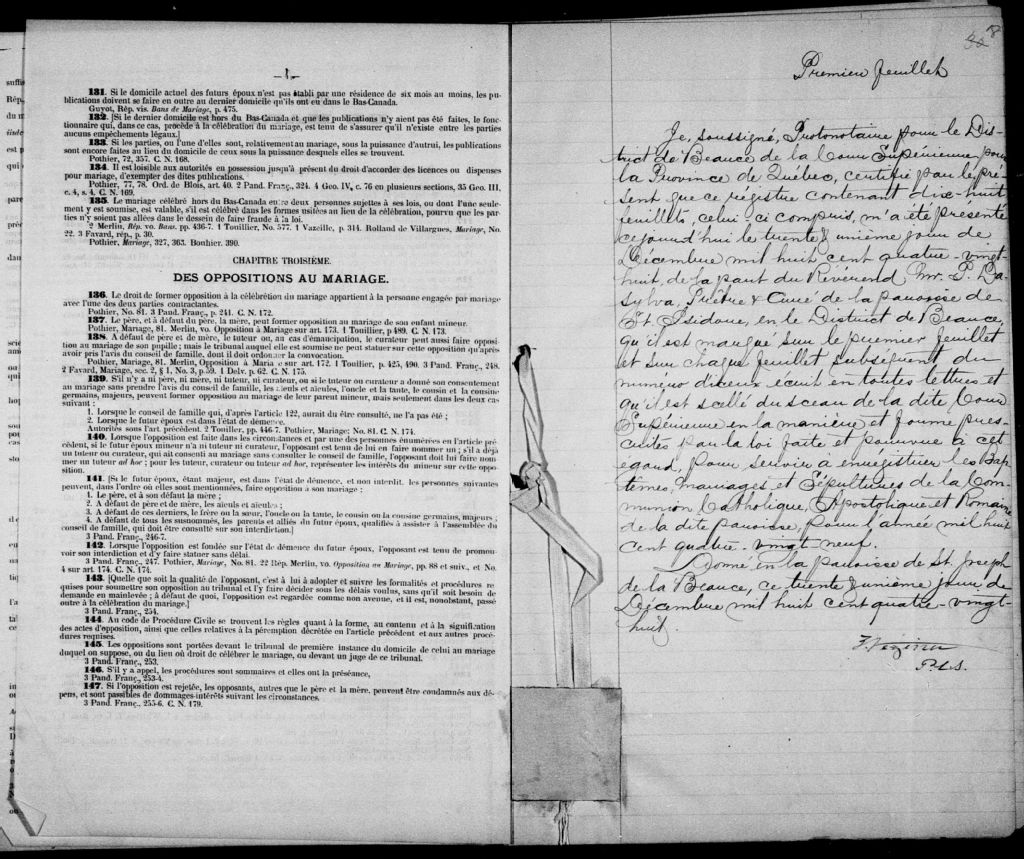 131. Si le domicile actuel des futurs époux n'est pas établi par une résidence de six mois au moins, les pu-
blications doivent se faire en outre au dernier domicile qu'ils ont eu dans le Bas-Canada.
Guyot, Rép. vis. Bans de Mariage, p. 475.
132. [Si le dernier domicile est hors du Bas-Canada et que les publications n'y aient pas été faites, le fonc-
tionnaire qui, dans ce cas, procède à la célébration du mariage, est tenu de s'assurer qu'il n'existe entre les parties
aucuns empêchements légaux.]
133. Si les parties, ou l'une d'elles sont, relativement au mariage, sous la puissance d'autrui, les publications
sont encore faites au lieu du domicile de ceux sous la puissance desquels elles se trouvent.
Pothier, 72, 357. C. N. 168.
134. Il est loisible aux autorités en possession jusqu'à présent du droit d'accorder des licences ou dispenses
pour mariage, d'exempter des dites publications.
Pothier, 77, 78. Ord. de Blois, art. 40. 2 Pand. Franç., 324. 4 Geo. IV, c. 76 en plusieurs sections, 35 Geo. III,
c. 4, s. 4. C. N. 169.
135. Le mariage célébré hors du Bas-Canada entre deux personnes sujettes à ses lois, ou dont l'une seule-
ment y est soumise, est valable, s'il est célébré dans les formes usitées au lieu de la célébration, pourvu que les par-
ties n'y soient pas allées dans le dessein de faire fraude à la loi.
2 Merlin, Rép. vo. Bans. pp. 436-7. 1 Touillier, No. 577. 1 Vazeille, p. 314. Rolland de Villargues, Mariage, No.
22. 3 Favard, rép., p. 30.
Pothier, Mariage, 327, 363. Bouhier. 390.
CHAPITRE TROISIÈME.
DES OPPOSITIONS AU MARIAGE.
136. Le droit de former opposition à la célébration du mariage appartient à la personne engagée par mariage
avec l'une des deux parties contractantes.
Pothier, No. 81. 3 Pand. Franç., p. 241. C. N. 172.
137. Le père, et à défaut du père, la mère, peut former opposition au mariage de son enfant mineur.
Pothier, Mariage, 81. Merlin, vo. Opposition à Mariage sur art. 173. 1 Touillier, p 489. C. N. 173.
138. A défaut de père et de mère, le tuteur ou, au cas d'émancipation, le curateur peut aussi faire opposi-
tion au mariage de son pupille; mais le tribunal auquel elle est soumise ne peut statuer sur cette opposition qu'après
avoir pris l'avis du conseil de famille, dont il doit ordonner la convocation.
Pothier, Mariage, 81. Merlin, Opposition à Mariage sur art. 172. 1 Touillier, p. 425, 490. 3 Pand. Franç., 248.
2 Favard, Mariage, sec. 2, § 1, No. 3, p. 59. 1 Delv. p. 62. C. N. 175.
139. S'il n'y a ni père, ni mère, ni tuteur, ni curateur, ou si le tuteur ou curateur a donné son consentement
au mariage sans prendre l'avis du conseil de famille, les aïeuls et aïeules, l'oncle et la tante, le cousin et la cousine
germains, majeurs, peuvent former opposition au mariage de leur parent mineur, mais seulement dans les deux cas
suivants :
1. Lorsque le conseil de famille qui, d'après l'article 122, aurait du être consulté, ne l'a pas été ;
2. Lorsque le futur époux est dans l'état de démence.
Autorités sous l'art. précédent. 2 Touiller, pp. 446-7. Pothier, Mariage: No. 81. C. N. 174.
140. Lorsque l'opposition est faite dans les circonstances et par une des personnes énumérées en l'article pré-
cédent, si le futur époux mineur n'a ni tuteur ni curateur, l'opposant est tenu de lui en faire nommer un ; s'il a déjà
un tuteur ou curateur, qui ait consenti au mariage sans consulter le conseil de famille, l'opposant doit lui faire nom-
mer un tuteur ad hoc ; pour les tuteur, curateur ou tuteur ad hoc, représenter les intérêts du mineur sur cette oppo-
sition.
141. [Si le futur époux, étant majeur, est dans l'état de démence, et non interdit, les personnes suivantes
peuvent, dans l'ordre où elles sont mentionnées, faire opposition à son mariage :
1. Le père, et à son défaut la mère ;
2. A défaut de père et de mère, les aïeuls et aïeules ;
3. A défaut de ces derniers, le frère ou la sœur, l'oncle ou la tante, le cousin ou la cousine germains, majeurs ;
4. A défaut de tous les susnommés, les parents et alliés du futur époux, qualifiés à assister à l'assemblée du
conseil de famille, qui doit être consulté sur son interdiction.]
3 Pand. Franç., 246-7.
142. Lorsque l'opposition est fondée sur l'état de démence du futur époux, l'opposant est tenu de promou-
voir son interdiction et d'y faire statuer sans délai.
3 Pand. Franç., 247. Pothier, Mariage, No. 81. 22 Rép. Merlin, vo. Opposition au Mariage, pp. 88 et suiv., et No.
4 sur art. 174. C. N. 174.
143. [Quelle que soit la qualité de l'opposant, c'est à lui à adopter et suivre les formalités et procédures re-
quises pour soumettre son opposition au tribunal et l'y faire décider sous les délais voulus, sans qu'il soit besoin de
demande en mainlevée ; à défaut de quoi, l'opposition est regardée comme non avenue, et il est, nonobstant, passé
outre à la célébration du mariage.]
3 Pand. Franç., 254.
144. Au code de Procédure Civile se trouvent les règles quant à la forme, au contenu et à la signification
des actes d'opposition, ainsi que celles relatives à la péremption décrétée en l'article précédent et aux autres procé-
dures requises.
145. Les oppositions sont portées devant le tribunal de première instance du domicile de celui au mariage
duquel on suppose, ou du lieu où doit être célébrer le mariage, ou devant un juge de ce tribunal.
3 Pand. Franç., 253.
146. S'il y a appel, les procédures sont sommaires et elles ont la préséance,
3 Pand. Franç., 253-4.
147. Si l'opposition est rejetée, les opposants, autres que le père et la mère, peuvent être condamnés aux dé-
pens, et sont passibles de dommages-intérêts suivant les circonstances.
3 Pand. Franç., 255-6. C. N. 179.
Premier feuillet
Je, soussigné, Protonotaire pour le Dis-
trict de Beauce de la Cour Supérieure pour
la Province de Québec, certifie par le pré-
sent que ce régistre contenant dix-huit
feuillets, celui ci compris, m'a été présenté
cejourd'hui le trente & unième jour de
Décembre mil huit cent quatre-vingt-
huit, de la part du Révérend Mr. P. Da-
sylva, Prêtre & Curé de la paroisse de
St Isidore, en le District de Beauce,
qu'il est marqué sur le premier feuillet
et sur chaque feuillet subséquent du
numéro d'iceux écrit en toutes lettres et
qu'il est scellé du sceau de la dite Cour
Supérieure en la manière et forme pres-
crites par la loi faite et pourvue à cet
égard, pour servir à enregistrer les Bap-
têmes, mariages et Sépultures de la Com-
munion Catholique, Apostolique et Romaine
de la dite paroisse, pour l'année mil huit
cent quatre-vingt neuf.
Donné en la paroisse de St Joseph
de la Beauce, ce trente & unième jour de
Décembre mil huit cent quatre-vingt-
huit.
P.C.S.